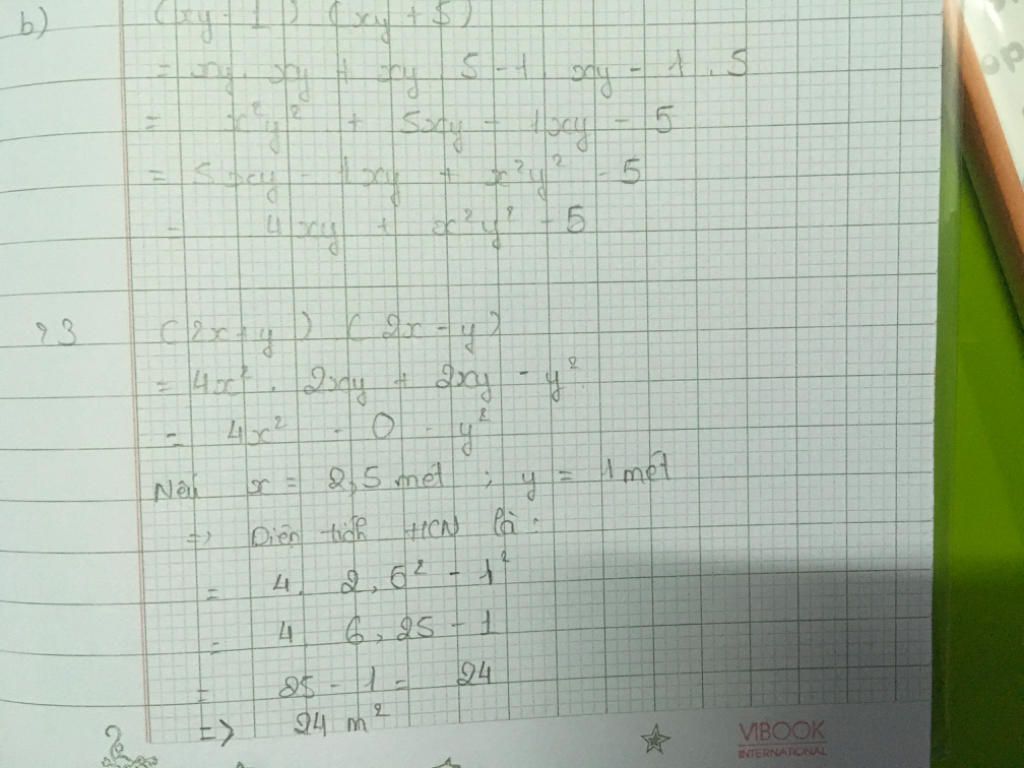 b) (xy - 1) (xy + 5)
= xy. xy + xy 5 - 1. xy - 1 . 5
= x²y² + 5xy - 1xy - 5
= 5xy - 1xy + x²y² - 5
= 4xy + x²y² - 5
?3 (2x+y) (2x-y)
= 4x² . 2xy + 2xy - y²
= 4x² - 0 - y²
Nếu x = 2,5 mét ; y = 1 mét
=> Diện tích HCN là :
= 4. 2,5² - 1²
= 4 6,25 - 1
= 25 - 1 = 24
=> 24 m²
VIBOOK
INTERNATIONAL